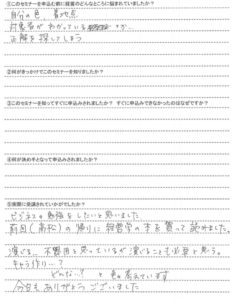 ①このセミナーを申込む前に経営のどんなところに悩まれていましたか？
自分の色、着地点
対象者がわかっている
正解を探してしまう
②何がきっかけでこのセミナーを知りましたか？
③このセミナーを知ってすぐに申込みされましたか？ すぐに申込みできなかったのはなぜですか？
④何が決め手となって申込みされましたか？
⑤実際に受講されていかがでしたか？
ビジネスの勉強をしたいと思いました
前回(高松)の帰りに経営学の本を買って読みました。
演じる、不得用と思っているが演じることも必要と思う。
キャラ作り…？
どんな、？と色々考えています
今日もありがとうございました